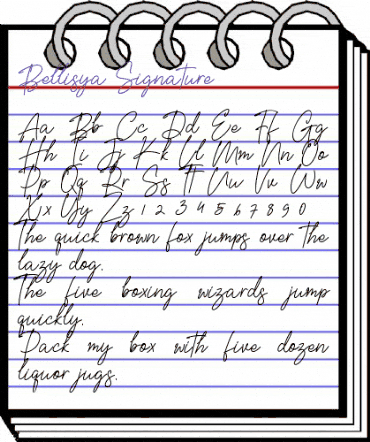 Bellisya Signature
Aa Bb Cc Dd Ee Ff Gg
Hh Ii Jj Kk Ll Mm Nn Oo
Pp Qq Rr Ss Tt Uu Vv Ww
Xx Yy Zz 1 2 3 4 5 6 7 8 9 0
The quick brown fox jumps over the
lazy dog.
The five boxing wizards jump
quickly.
Pack my box with five dozen
liquor jugs.